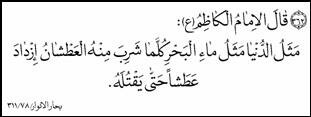 قَالَ الإِمَامُ الْكَاظِمُ(ع):
مَثَلُ الدُّنْيَا مَثَلُ مَاءِ الْبَحْرِ كُلَّمَا شَرِبَ مِنْهُ الْعَطْشَانُ إِزْدَادَ
عَطَشاً حَتَّى يَقْتُلَهُ.
بحار الانوار ٣١١/٧٨